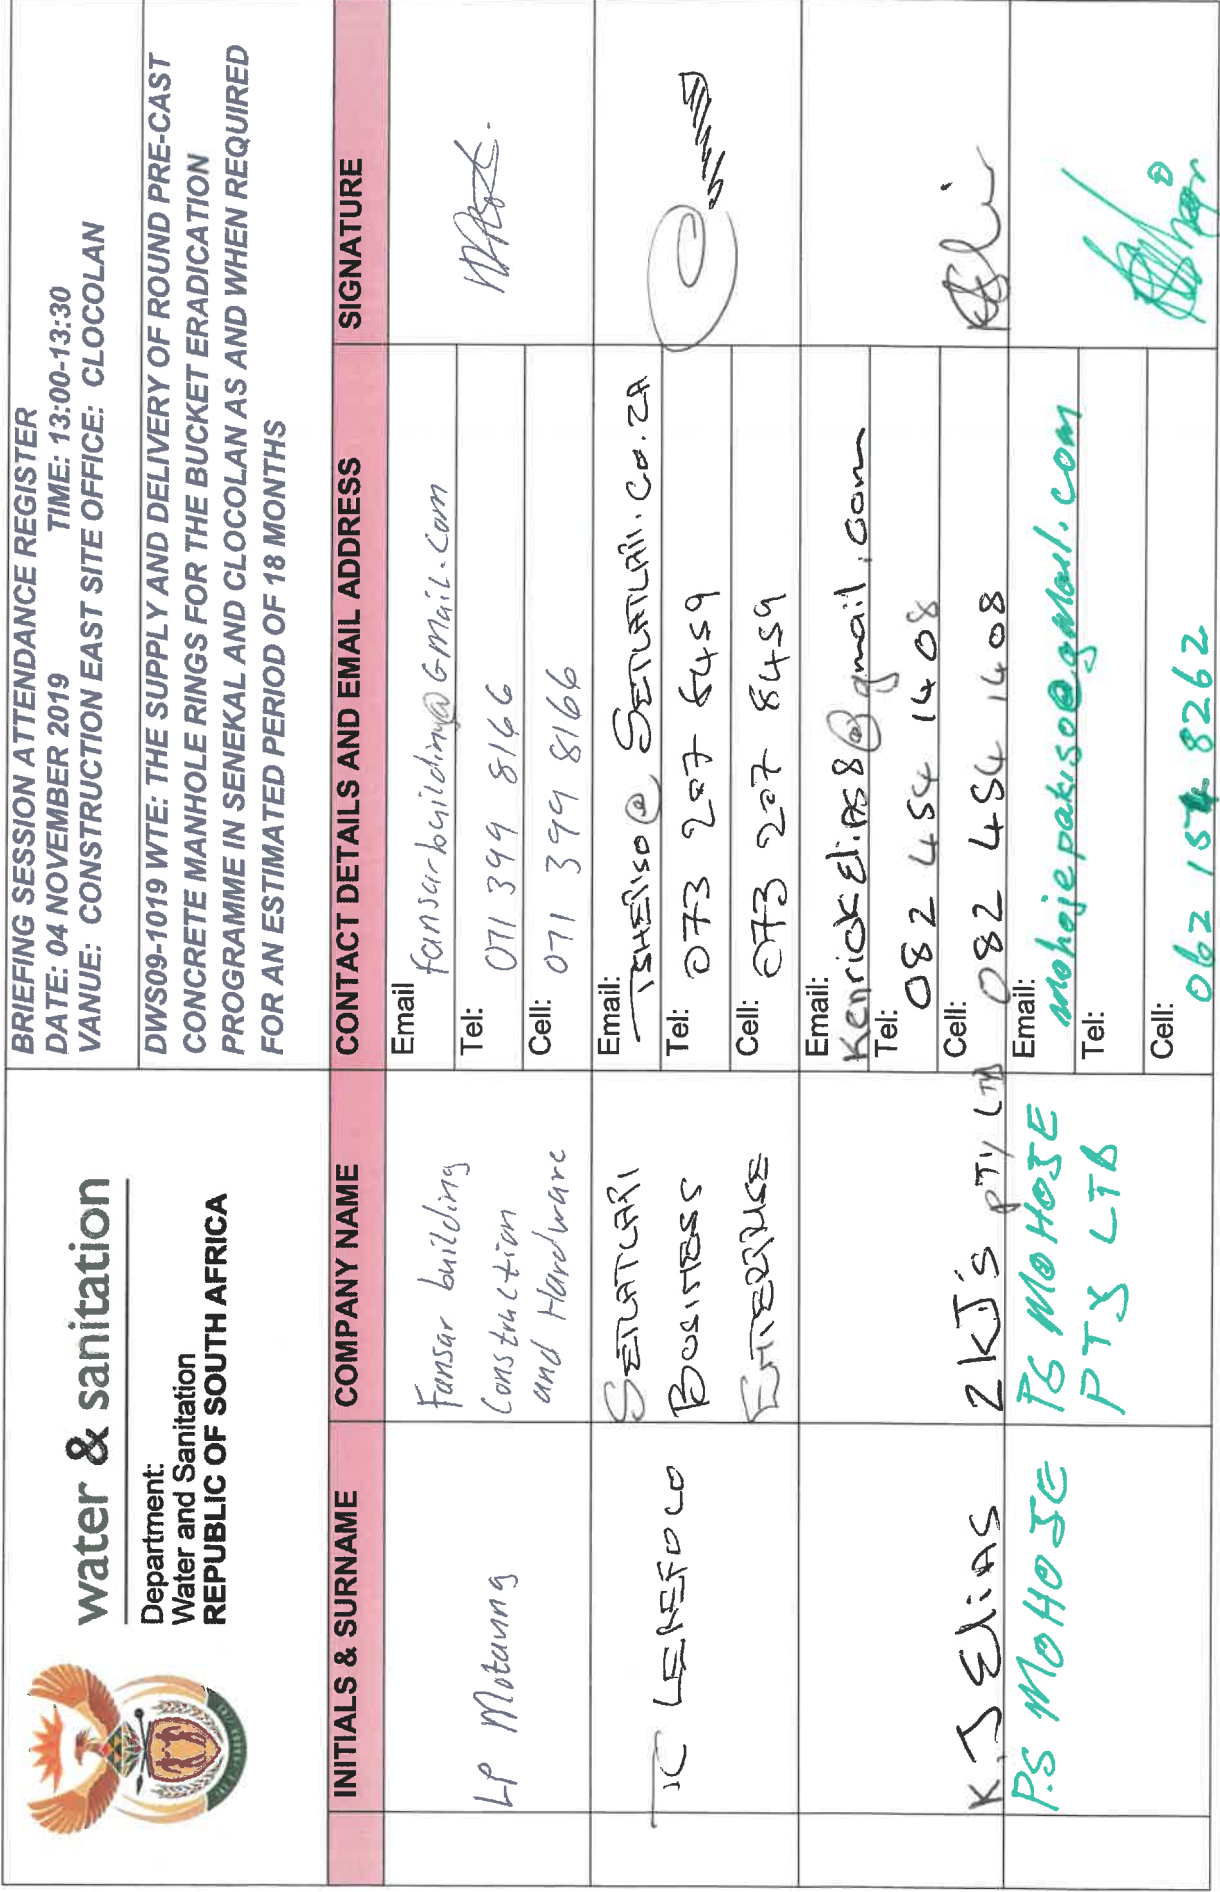 water & sanitation
Department:
Water and Sanitation
REPUBLIC OF SOUTH AFRICA
BRIEFING SESSION ATTENDANCE REGISTER
DATE: 04 NOVEMBER 2019 TIME: 13:00-13:30
VANUE: CONSTRUCTION EAST SITE OFFICE: CLOCOLAN
DWS09-1019 WTE: THE SUPPLY AND DELIVERY OF ROUND PRE-CAST
CONCRETE MANHOLE RINGS FOR THE BUCKET ERADICATION
PROGRAMME IN SENEKAL AND CLOCOLAN AS AND WHEN REQUIRED
FOR AN ESTIMATED PERIOD OF 18 MONTHS
INITIALS & SURNAME COMPANY NAME CONTACT DETAILS AND EMAIL ADDRESS SIGNATURE
LP Motaung
Fansar building
Construction
and Hardware
Email fansarbuilding@Gmail.Com
Tel: 071 399 8166
Cell: 071 399 8166
SETLATLAPI
BUSINESS
ENTERPRISE
Email: TSHEPISO@SETLATLAPI.CO.ZA
Tel: 073 207 8459
Cell: 073 207 8459
K.J EliAS
2KJ's PTY LTD
Email: KenrickEliAS8@gmail.com
Tel: 082 454 1408
Cell: 082 454 1408
P.S MOHOJE
PS MOHOJE
PTY LTD
Email: mohojepakiso@gmail.com
Tel:
Cell: 062 157 8262